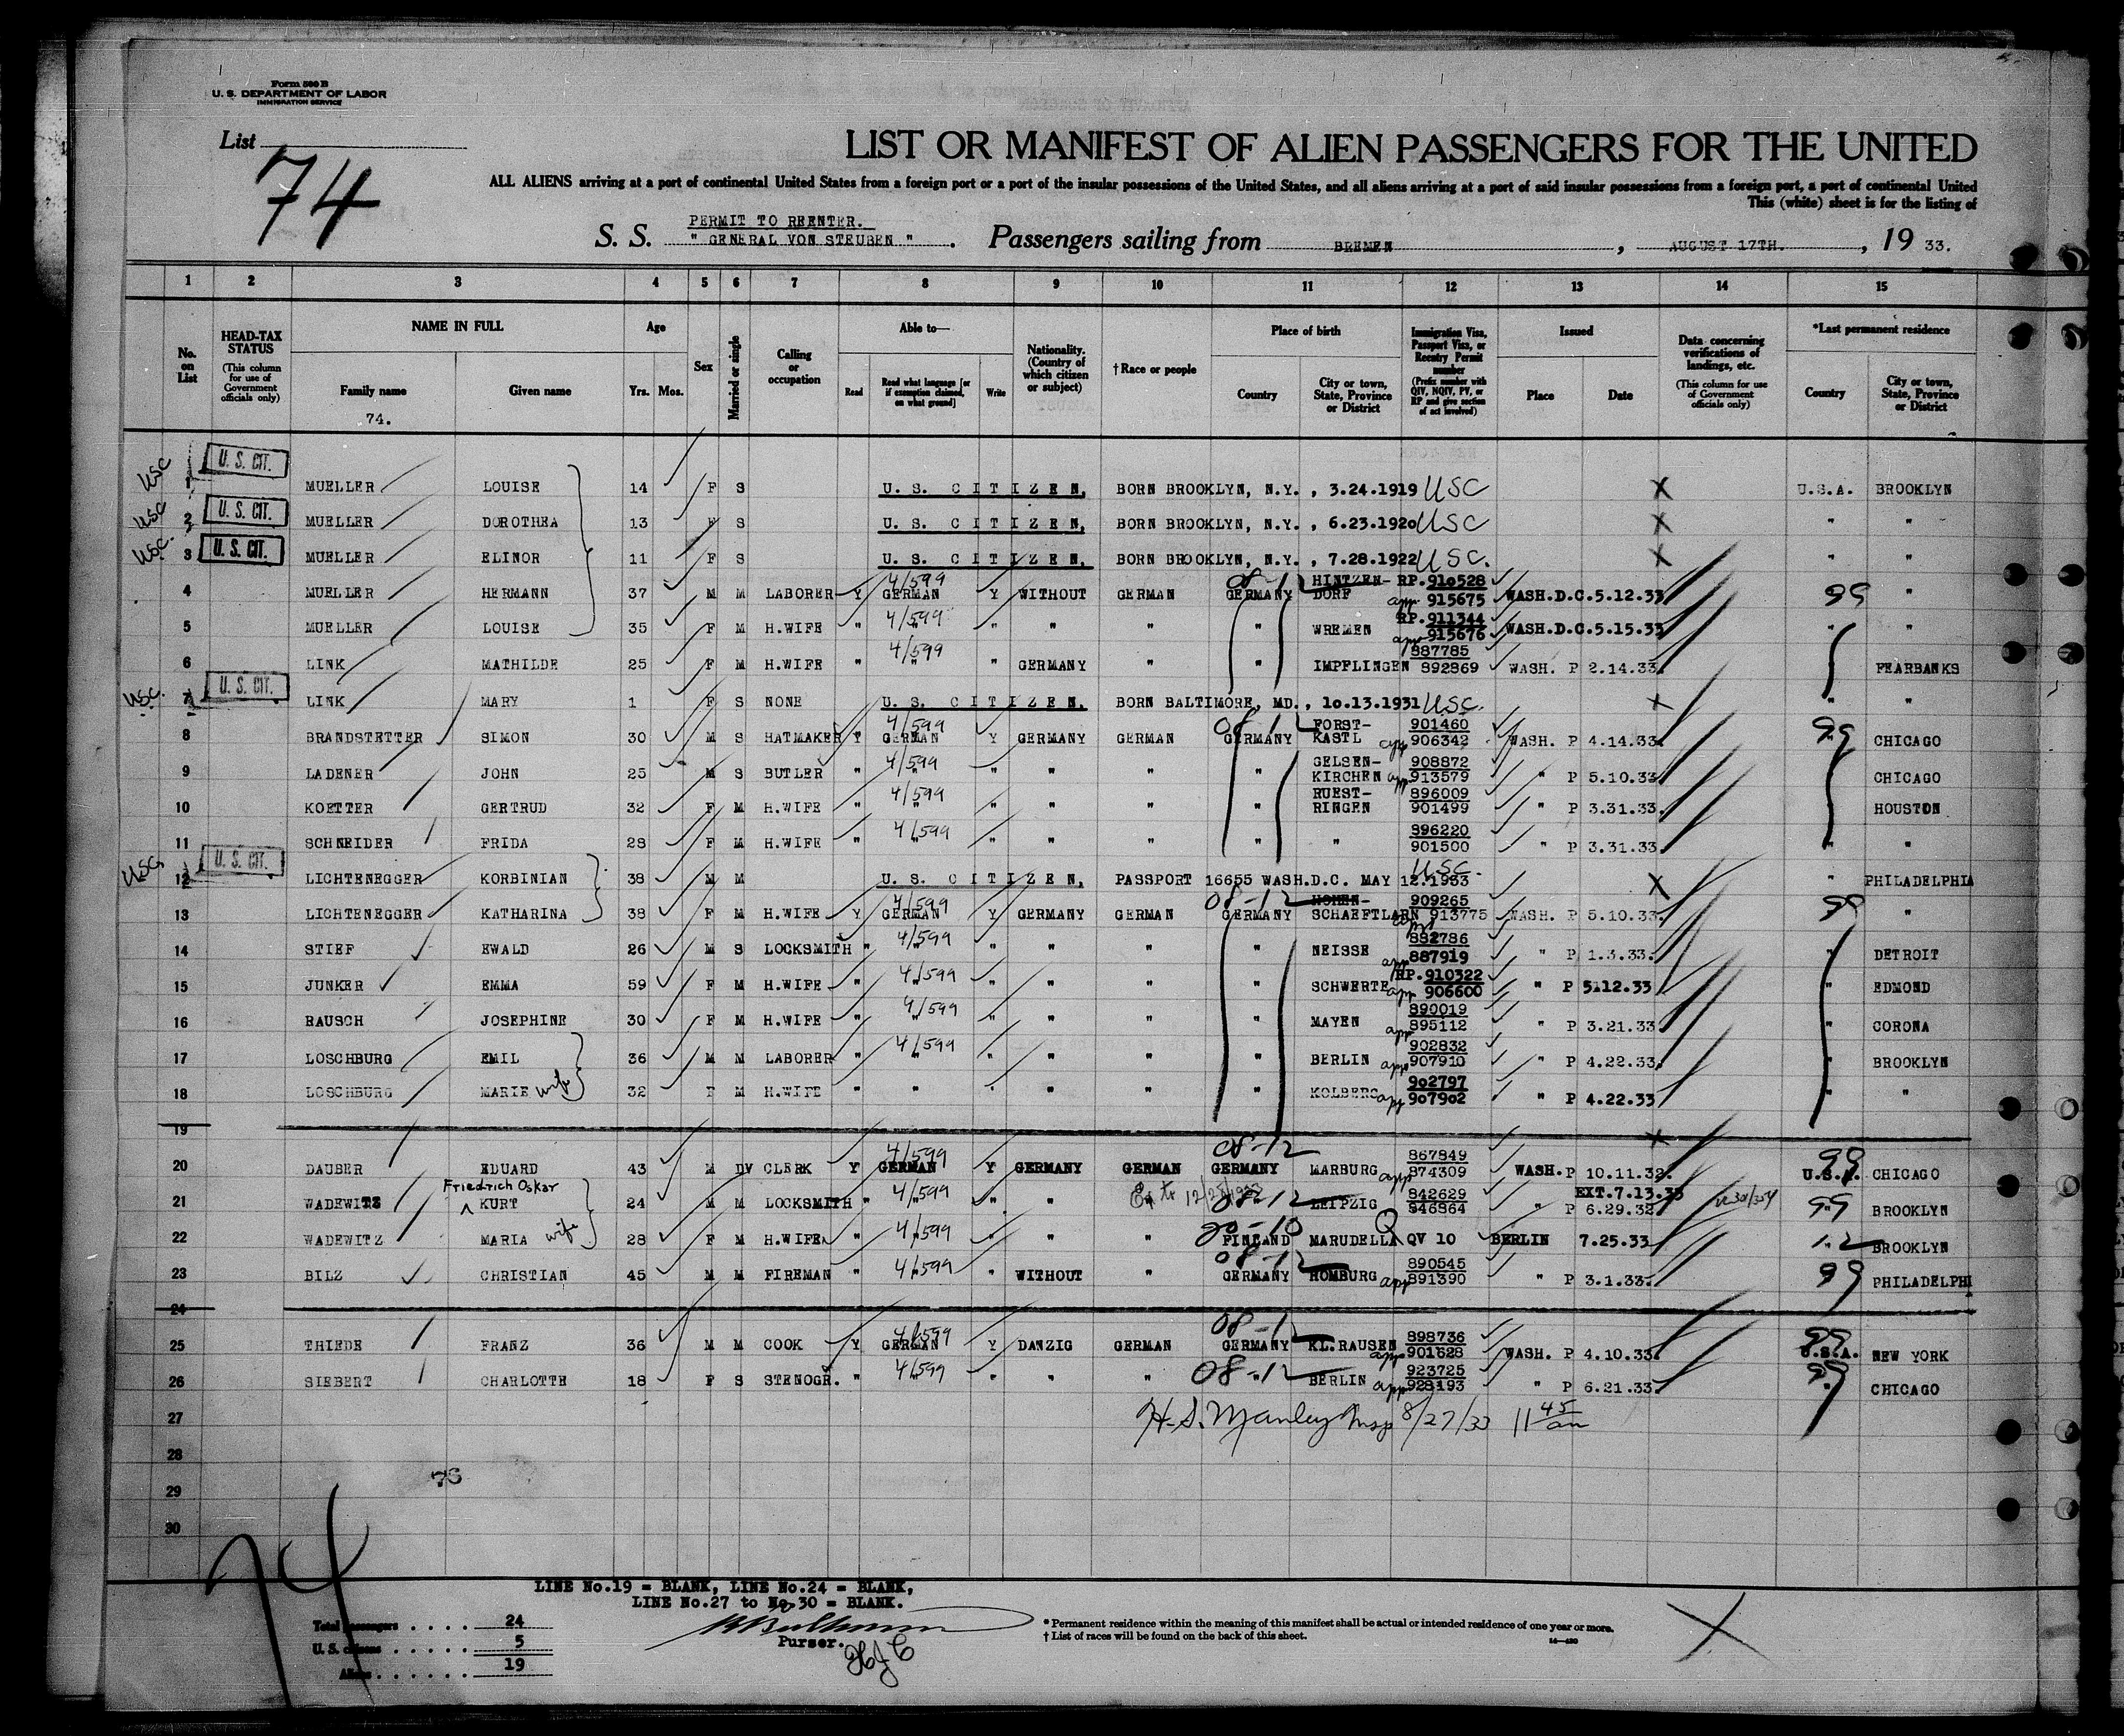 Form 500 B
U. S. DEPARTMENT OF LABOR
IMMIGRATION SERVICE
List
74
LIST OR MANIFEST OF ALIEN PASSENGERS FOR THE UNITED
ALL ALIENS arriving at a port of continental United States from a foreign port or a port of the insular possessions of the United States, and all aliens arriving at a port of said insular possessions from a foreign port, a port of continental United
This (white) sheet is for the listing of
PERMIT TO REENTER.
S. S. " GENERAL VON STEUBEN " . Passengers sailing from BREMEN , AUGUST 17TH. , 19 33.
1 2 3 4 5 6 7 8 9 10 11 12 13 14 15
No. on List
HEAD-TAX STATUS (This column for use of Government officials only)
NAME IN FULL Family name Given name
74.
Age Yrs. Mos.
Sex
Married or single
Calling or occupation
Able to— Read Read what language [or if exemption claimed, on what ground] Write
Nationality. (Country of which citizen or subject)
†Race or people
Place of birth Country City or town, State, Province or District
Immigration Visa, Passport Visa, or Reentry Permit number (Prefix number with QIV, NQIV, PV, or RP and give section of act involved)
Issued Place Date
Data concerning verifications of landings, etc. (This column for use of Government officials only)
*Last permanent residence Country City or town, State, Province or District
USC 1 U. S. CIT. MUELLER LOUISE 14 F S U. S. CITIZEN, BORN BROOKLYN, N.Y. , 3.24.1919 USC X U.S.A. BROOKLYN
USC 2 U. S. CIT. MUELLER DOROTHEA 13 F S U. S. CITIZEN, BORN BROOKLYN, N.Y. , 6.23.1920 USC X " "
USC. 3 U. S. CIT. MUELLER ELINOR 11 F S U. S. CITIZEN, BORN BROOKLYN, N.Y. , 7.28.1922 USC. X " "
4 MUELLER HERMANN 37 M M LABORER Y 4/599 GERMAN Y WITHOUT GERMAN 08-12 GERMANY HINTZEN-DORF RP.910528 app 915675 WASH.D.C. 5.12.33 99 "
5 MUELLER LOUISE 35 F M H.WIFE " 4/599 " " " " " WREMEN RP.911344 app 915676 WASH.D.C. 5.15.33 " "
6 LINK MATHILDE 25 F M H.WIFE " 4/599 " " GERMANY " " IMPFLINGEN 887785 892869 WASH. P 2.14.33. FEARBANKS
USC. 7 U. S. CIT. LINK MARY 1 F S NONE U. S. CITIZEN, BORN BALTIMORE, MD. , 10.13.1931 USC. X " "
8 BRANDSTETTER SIMON 30 M S HATMAKER Y 4/599 GERMAN Y GERMANY GERMAN 08-12 GERMANY FORST-KASTL 901460 app 906342 WASH. P 4.14.33. 99 CHICAGO
9 LADENER JOHN 25 M S BUTLER " 4/599 " " " " " GELSEN-KIRCHEN 908872 app 913579 " P 5.10.33. " CHICAGO
10 KOETTER GERTRUD 32 F M H.WIFE " 4/599 " " " " " RUEST-RINGEN 896009 901499 " P 3.31.33. " HOUSTON
11 SCHNEIDER FRIDA 28 F M H.WIFE " 4/599 " " " " " " 896220 901500 " P 3.31.33. " "
USC. 12 U. S. CIT. LICHTENEGGER KORBINIAN 38 M M U. S. CITIZEN, PASSPORT 16655 WASH.D.C. MAY 12.1933 USC. X " PHILADELPHIA
13 LICHTENEGGER KATHARINA 38 F M H.WIFE Y 4/599 GERMAN Y GERMANY GERMAN 08-12 GERMANY HOHEN-SCHAEFTLARN 909265 app 913775 WASH. P 5.10.33. 99 "
14 STIEF EWALD 26 M S LOCKSMITH " 4/599 " " " " NEISSE 882786 app 887919 " P 1.3.33. " DETROIT
15 JUNKER EMMA 59 F M H.WIFE " 4/599 " " " " " SCHWERTE RP.910322 app 906600 " P 5.12.33 " EDMOND
16 RAUSCH JOSEPHINE 30 F M H.WIFE " 4/599 " " " " " MAYEN 890019 app 895112 " P 3.21.33. " CORONA
17 LOSCHBURG EMIL 36 M M LABORER " 4/599 " " " " " BERLIN 902832 app 907910 " P 4.22.33. " BROOKLYN
18 LOSCHBURG MARIE wife 32 F M H.WIFE " " " " " " KOLBERG 902797 app 907902 " P 4.22.33 " "
19 X
20 DAUBER EDUARD 43 M DV CLERK Y 4/599 GERMAN Y GERMANY GERMAN 08-12 GERMANY MARBURG 867849 app 874309 WASH. P 10.11.32. 99 U.S.A. CHICAGO
21 WADEWITZ Friedrich Oskar KURT 24 M M LOCKSMITH " 4/599 " " " 08-12 LEIPZIG 842629 946864 EXT.7.13.33 " P 6.29.32. 99 BROOKLYN
22 WADEWITZ MARIA wife 28 F M H.WIFE " 4/599 " " " " 20-10 FINLAND MARUDELLA Q QV 10 BERLIN 7.25.33 12 BROOKLYN
23 BILZ CHRISTIAN 45 M M FIREMAN " 4/599 " WITHOUT " 08-12 GERMANY HOMBURG 890545 app 891390 " P 3.1.33. 99 PHILADELPHI
24
25 THIEDE FRANZ 36 M M COOK Y 4/599 GERMAN Y DANZIG GERMAN 08-12 GERMANY KL.RAUSEN 898736 app 901628 WASH. P 4.10.33. 99 U.S.A. NEW YORK
26 SIEBERT CHARLOTTE 18 F S STENOGR. " 4/599 " " " 08-12 BERLIN 923725 app 928193 " P 6.21.33. 99 CHICAGO
27 H. S. Manley Insp 8/27/33 11 45 am
28
76
29
30
74
LINE No.19 = BLANK, LINE No.24 = BLANK,
LINE No.27 to No.30 = BLANK.
Total passengers . . . . . 24
U. S. citizens . . . . . . 5
Aliens . . . . . . 19
Purser.
* Permanent residence within the meaning of this manifest shall be actual or intended residence of one year or more.
† List of races will be found on the back of this sheet.
X